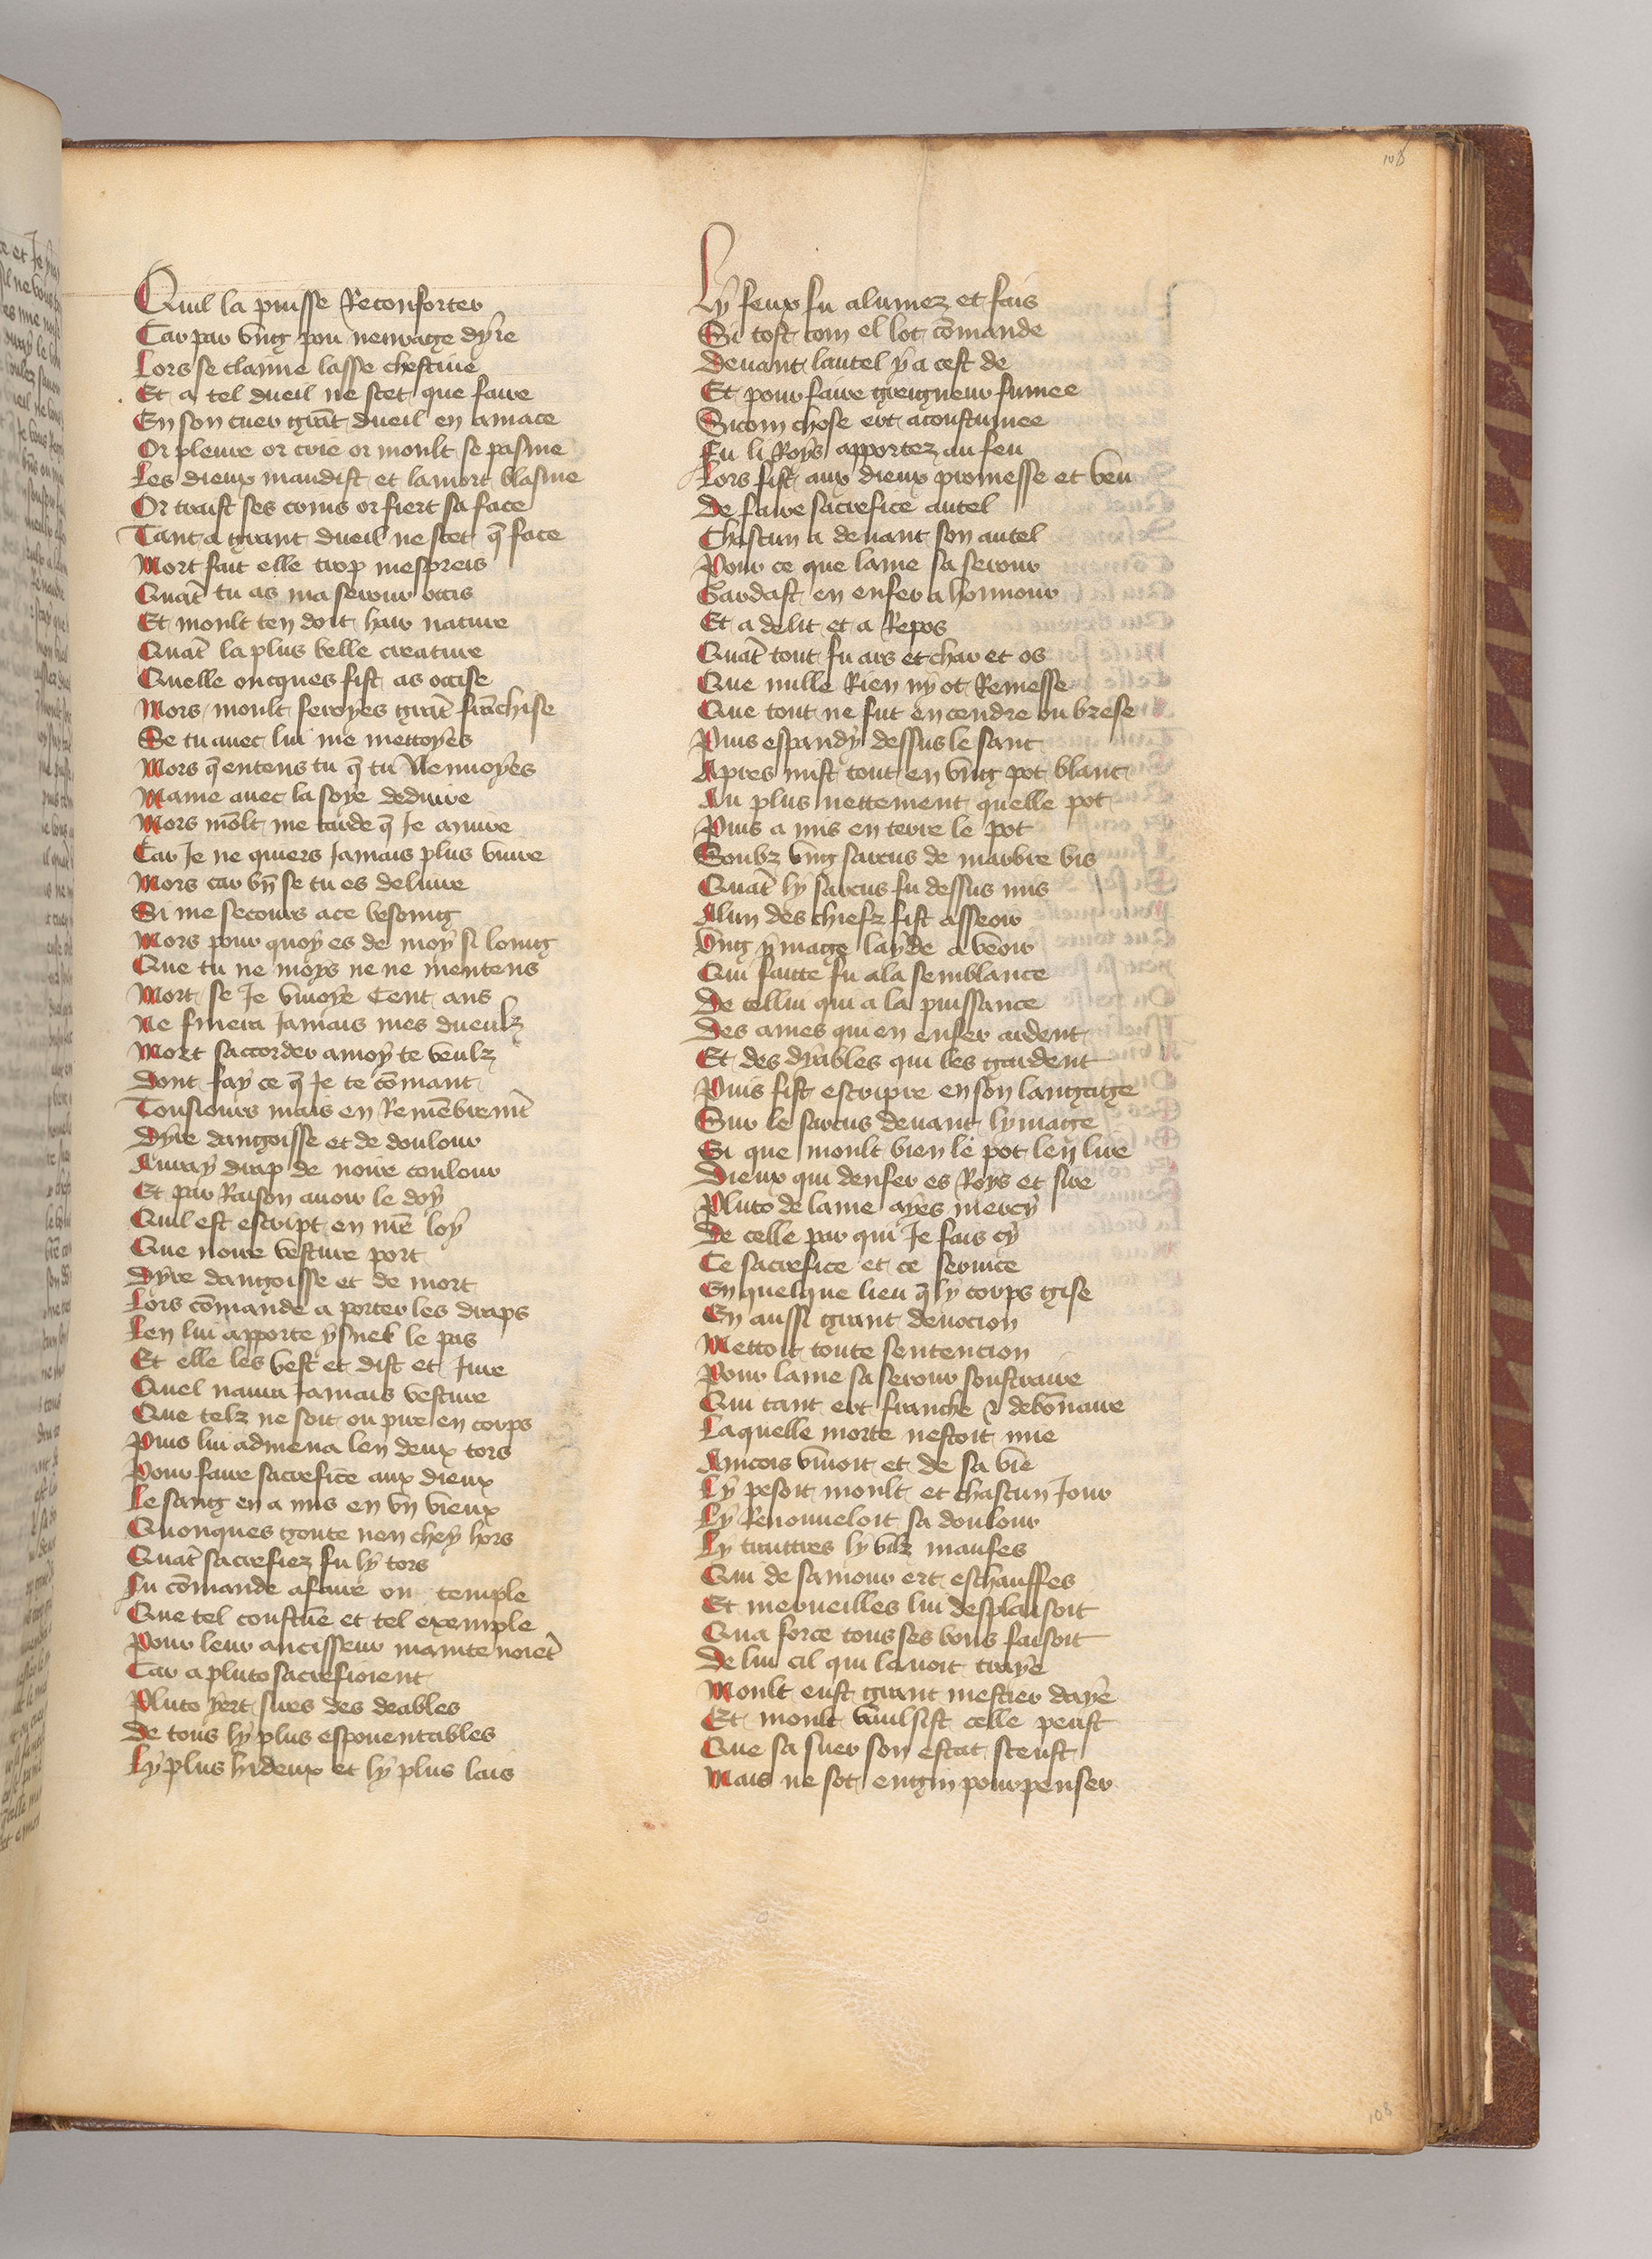 108
Quil la puisse Reconforter
Car par vng pou nenrage dyre
Lors se clame lasse chestiue
Et a tel dueil ne scet que faire
En son cuer grãt dueil en amace
Or pleure or crie or moult se pasme
Les dieux maudist et la mort blasme
Or traist ses crins or fiert sa face
Tant a grant dueil ne scet q̃ face
Mort fait elle trop mespreis
Quãt tu as ma serour occis
Et moult ten doit hair nature
Quãt la plus belle creature
Quelle oncques fist as occise
Mors moult feroyes grãt frãchise
Se tu auec lui me mettoyes
Mors q̃ entens tu q̃ tu Nenuoyes
Mame auec la soye deduire
Mors mõlt me tarde q̃ Je a muire
Car Je ne quiers Jamais plus viure
Mors car vn se tu es deliure
Si me secours a ce besoing
Mors pour quoy es de moy si loing
Que tu ne moys ne ne mentens
Mort se Je viuoye Cent ans
Ne finera Jamais mes dueulz
Mort saccorder a moy te veulz
Dont fay ce q̃ Je te cõmant
Tousiours mais en Remẽbremt̃
Dyre dangoisse et de doulour
Auray drap de noire coulour
Et par Raison auoir le doy
Quil est escript en nr̃e loy
Que noire vesture port
Dyre dangoisse et de mort
Lors cõmande a porter les draps
Len lui apporte ysnel le pas
Et elle les vest et dist et Jure
Quel naura Jamais vesture
Que telz ne soit ou pire en corps
Puis lui admena len deux tors
Pour faire sacrefice aux dieux
Le sang en a mis en vn vieux
Quonques goute nen chey hors
Quãt sacrefiez fu ly tors
Lu cõmande a faire on temple
Que tel coustũe et tel exemple
Pour leur ancisseur maintenoiẽt
Car a pluto sacrefioient
Pluto yert sires des deables
De tous ly plus espouentables
Ly plus hydeux et ly plus lais
Ly feux fu alumez et fais
Si tost com el lot cõmande
Deuant lautel y a cest de
Et pour faire greigneur fumee
Sicom chose ert acoustumee
Fu li Roys apportez au feu
Lors fist aux dieux promesse et veu
De faire sacrefice autel
Chascun a deuant son autel
Pour ce que lame sa serour
Gardast en enfer a honnour
Et a delit et a Repos
Quãt tout fu ars et char et os
Que nulle Rien ny ot Remesse
Que tout ne fut en cendre ou brese
Puis espandy dessus le sanc
Apres mist tout en vng pot blanc
Au plus nettement quelle pot
Puis a mis en terre le pot
Soubz vng sarcus de marbre bis
Quãt ly sarcus fu dessus mis
Alun des chiefz fist asseoir
Vng ymage layde a veoir
Qui faitte fu a la semblance
De cellui qui a la puissance
Des ames qui en enfer ardent
Et des dyables qui les gardent
Puis fist escripre en son langage
Sur le sarcus deuant lymage
Si que moult bien le pot len lire
Dieux qui denfer es Roys et sire
Pluto de lame ayes mercy
De celle par qui Je fais cy
Ce sacrefice et ce seruice
En quelque lieu q̃ ly corps gise
En aussi grant deuocion
Mettoit toute sentencion
Pour lame sa serour soustraire
Qui tant ert franche & debõnaire
Laquelle morte nestoit mie
Aincois viuoit et de sa vie
Ly pesoit moult et chascun Jour
Ly Renouueloit sa doulour
Ly truttres ly vilz maufes
Qui de samour ert eschauffes
Et merueilles lui desplaisoit
Qua force tous ses bons faisoit
De lui cil qui lauoit traye
Moult eust grant mestier daye
Et moult vaulsist celle peust
Que sa suer son estat sceust
Mais ne sot engin pourpenser
108